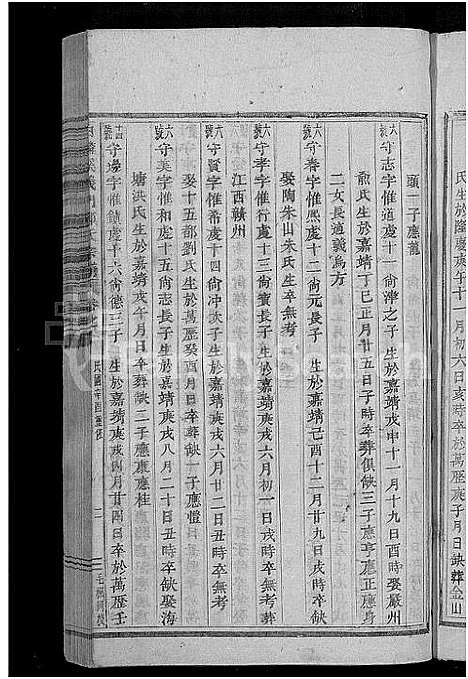 氏生於隆慶庚午十一月初六日亥時卒於萬歷庚子月日缺葬金山
頭一子應龍
六號守志字惟道處十一尙津之子生於嘉靖戊申十一月十九日酉時娶嚴州
俞氏生於嘉靖丁巳正月廿五日子時卒葬俱缺三子應亨應正應身
二女長適義烏方
六號守春字惟熙處十二尙元長子生於嘉靖己酉十二月廿九日戌時
娶陶朱山朱氏生卒無考
六號守孝字惟行處十三尙賓長子生於嘉靖庚戌六月初一日亥時卒無考葬
江西贛州
六號守賢字惟希處十四尙冲次子生於嘉靖庚戌六月廿二日丑時卒無考
娶十五都劉氏生於萬歷癸酉月日卒葬缺一子應憕
六號守美字惟和處十五尙志長子生於嘉靖庚戌八月二十日丑時卒缺娶海
塘洪氏生於嘉靖戊午月日卒葬缺二子應東應桂
十四號守邊字惟鎮處十六尙德三子生於嘉靖庚戌四月廿四日卒於萬歷壬